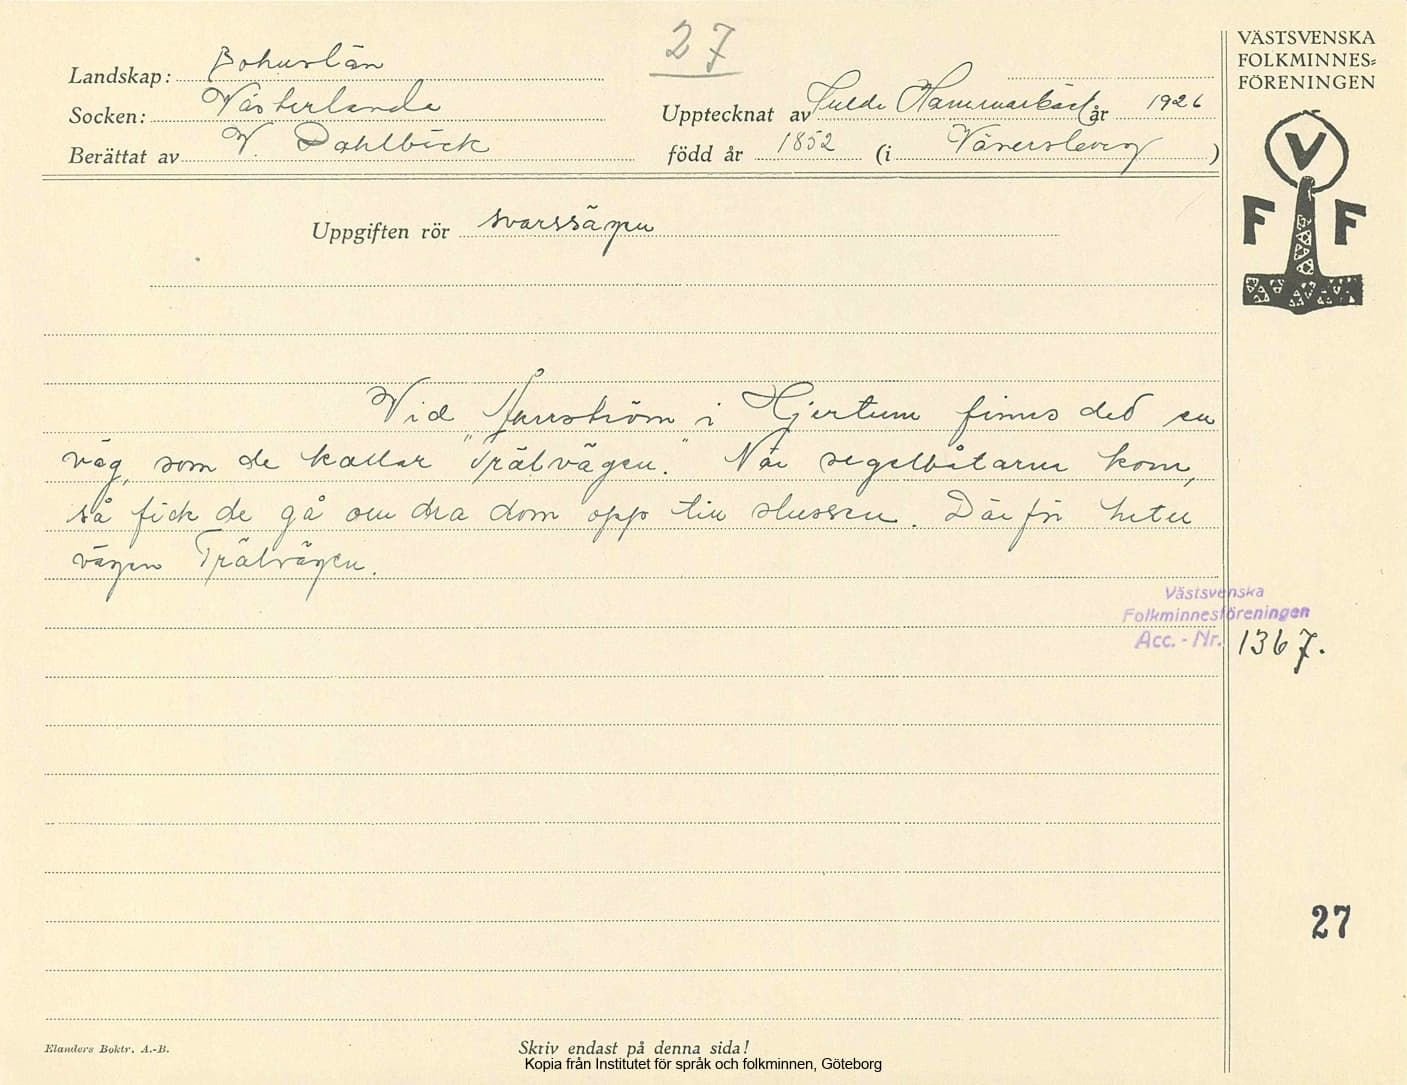 27
VÄSTSVENSKA
FOLKMINNES=
FÖRENINGEN
V
F F
Landskap: Bohuslän
Socken: Västerlanda
Upptecknat av Hulda Hammarbäck år 1926
Berättat av V. Dahlbäck
född år 1852 (i Vänersborg)
Uppgiften rör svarssägen
Vid i Hjertum finns det en
väg, som de kallar "Trälvägen." När segelbåtarna kom,
så fick de gå om dra dom opp till slussen. Därför heter
vägen Trälvägen.
Västsvenska
Folkminnesföreningen
Acc. - Nr. 1367.
27
Elanders Boktr. A.-B.
Skriv endast på denna sida!
Kopia från Institutet för språk och folkminnen, Göteborg